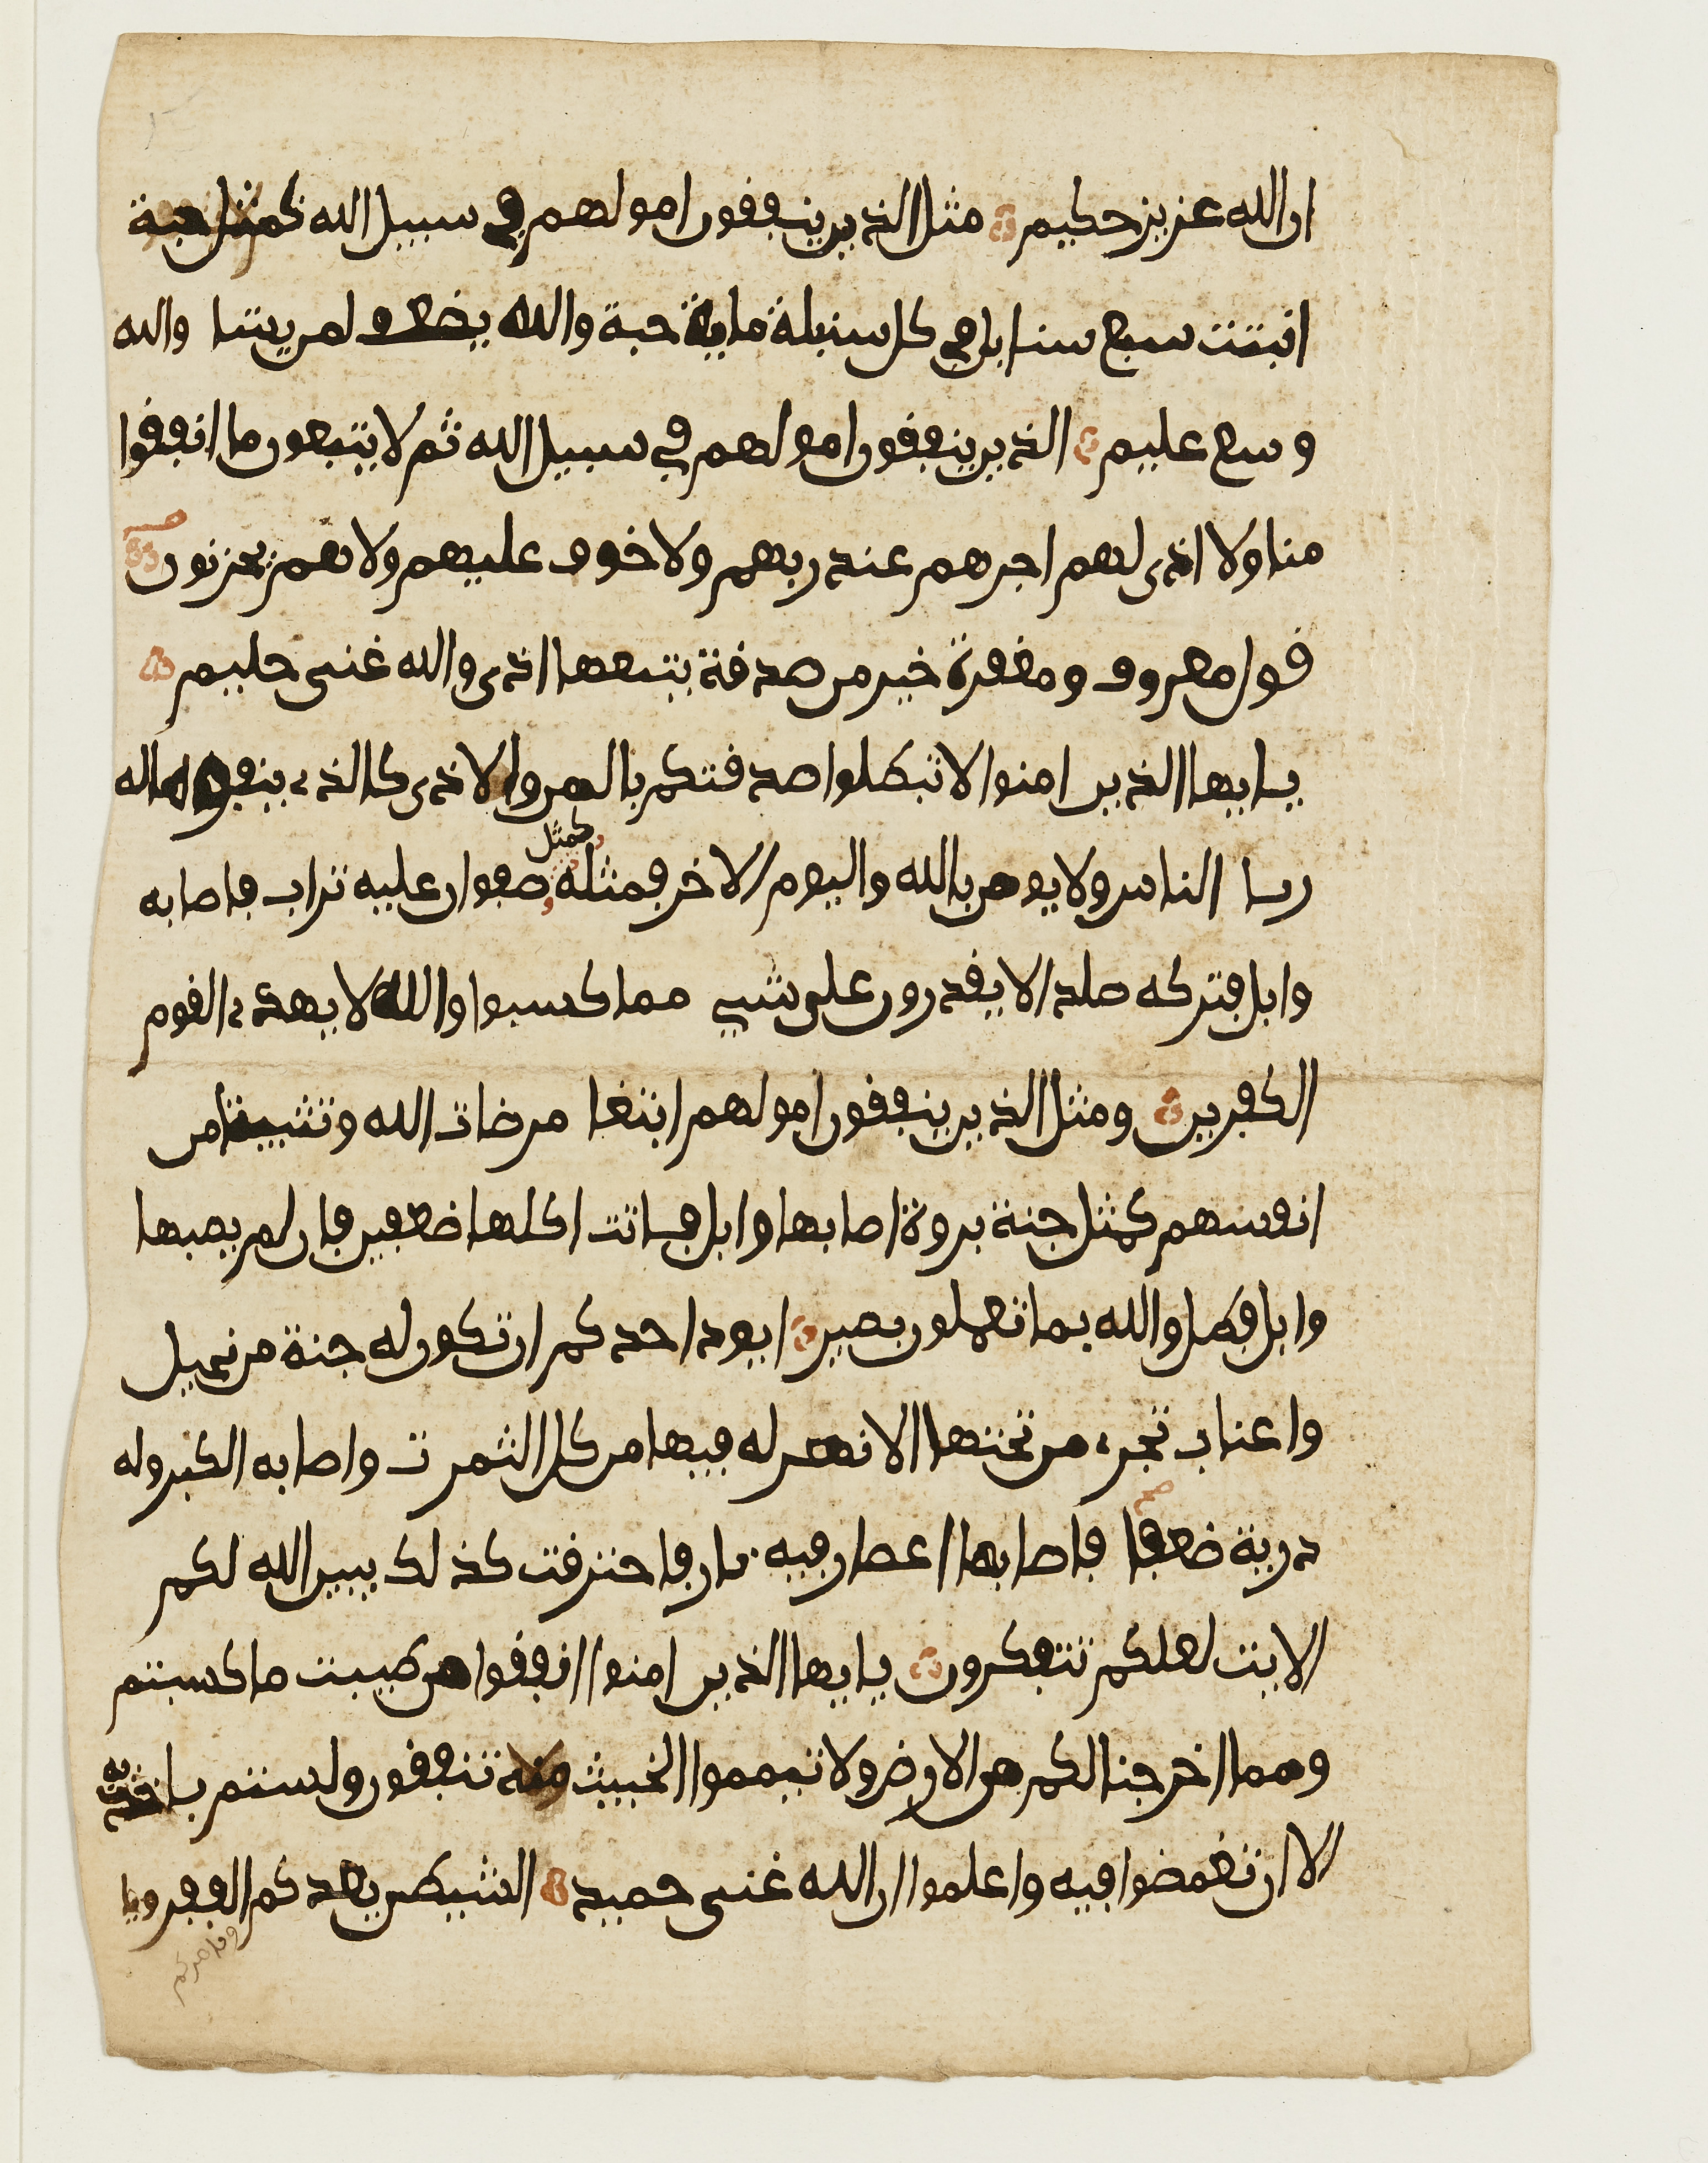 ان الله عزيز حكيم مثل الذين ينفقون امولهم في سبيل الله كمثل حبة
انبتت سبع سنابل في كل سنبلة ماية حبة والله يضعف لمن يشا والله
وسع عليم الذين ينفقون امولهم في سبيل الله ثم لا يتبعون ما انفقوا
منا ولا اذى لهم اجرهم عند ربهم ولا خوف عليهم ولا هم يحزنون
قول معروف ومغفرة خير من صدقة يتبعها اذى والله غنى حليم
يايها الذين امنوا لا تبطلوا صدقتكم بالمن والاذى كالذي ينفق ماله
ريا الناس ولا يومن بالله واليوم الاخر فمثله كمثل صفوان عليه تراب فاصابه
وابل فتركه صلدا لا يقدرون على شي مما كسبوا والله لا يهدي القوم
الكفرين ومثل الذين ينفقون امولهم ابتغا مرضات الله وتثبيتا من
انفسهم كمثل جنة بروة اصابها وابل فاتت اكلها ضعفين فان لم يصبها
وابل فطل والله بما تعملون بصير ايود احدكم ان تكون له جنة من نخيل
واعناب تجري من تحتها الانهر له فيها من كل الثمرت واصابه الكبر وله
درية ضعفا فاصابها اعصار فيه نار فاحترقت كذلك يبين الله لكم
الايت لعلكم تتفكرون يايها الذين امنوا انفقوا من طيبت ما كسبتم
ومما اخرجنا لكم من الارض ولا تيمموا الخبيث منه تنفقون ولستم باخذيه
الا ان تغمضوا فيه واعلموا ان الله غنى حميد الشيطن يعدكم الفقر ويا